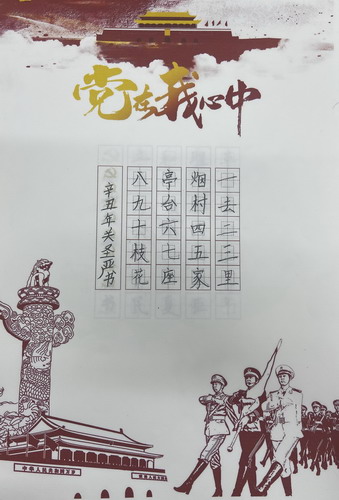 党在我心中
一去二三里
烟村四五家
亭台六七座
八九十枝花
辛丑年关圣严书
中华人民共和国万岁